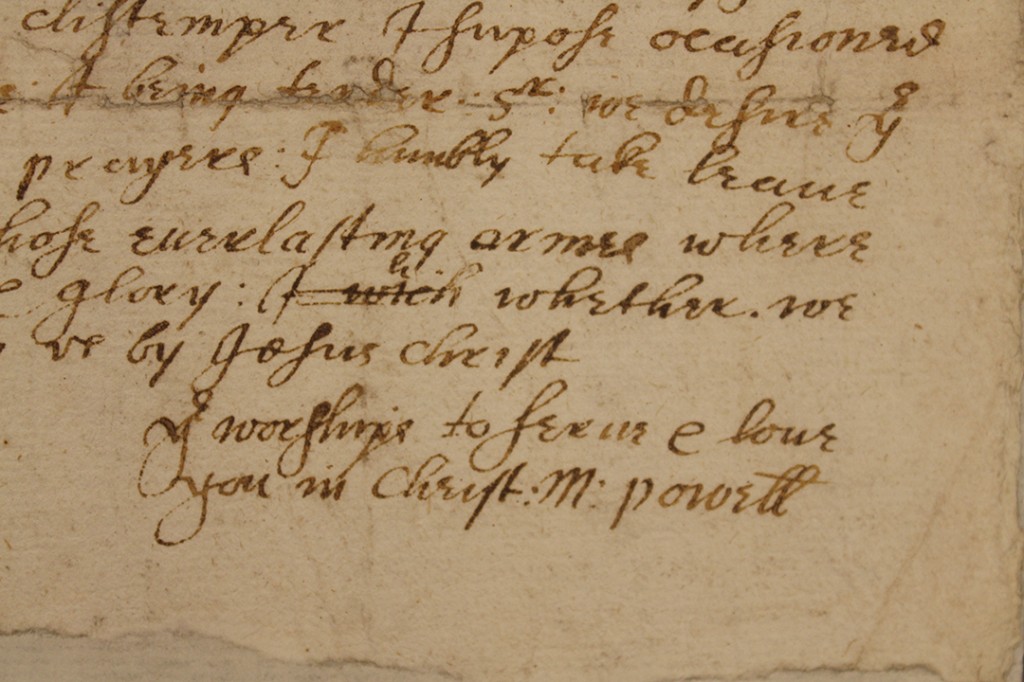 distemper I supose ocasioned
I being tender: Sr: we desire yr
prayers: I humbly take leave
hose euerlasting armes where
glory: whether we
us by Jesus Christ
yr worships to serue & loue
you in Christ: M: Powell